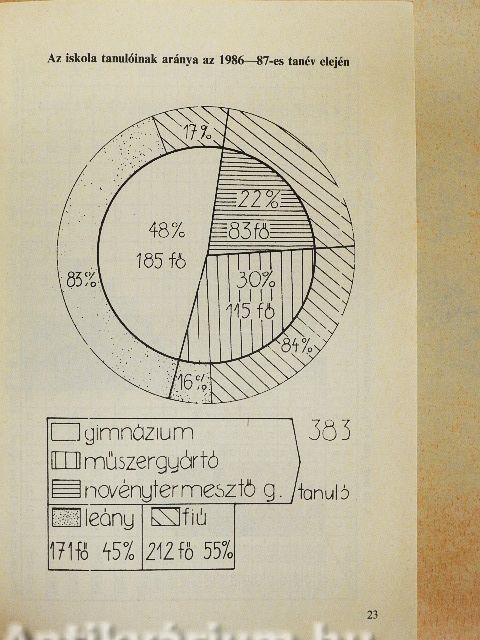 Az iskola tanulóinak aránya az 1986—87-es tanév elején
17%
22%
83fő
48%
185 fő
83%
30%
115 fő
84%
16%
gimnázium
383
műszergyártó
novénytermesztő g.
tanuló
leány
fiú
171fő 45%
212 fő 55%
23
Antikvárium.hu